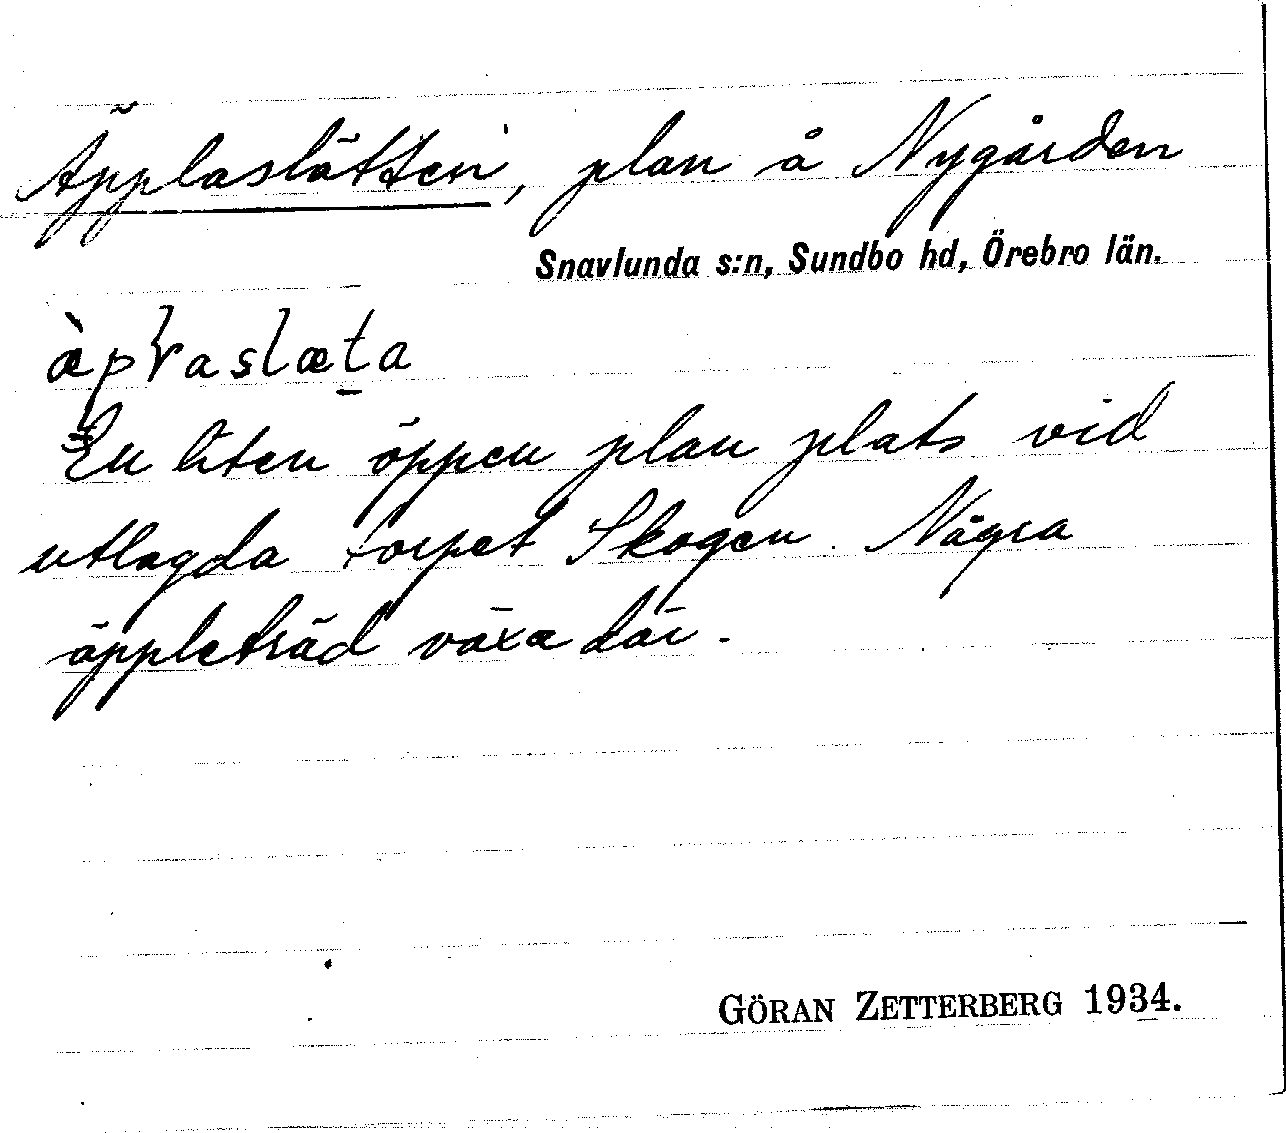 Äpplaslätten, plan å Nygården
Snavlunda s:n, Sundbo hd, Örebro län.
En liten öppen plan plats vid
utlagda torpet Skogen. Några
äppleträd växa där.
GÖRAN ZETTERBERG 1934.